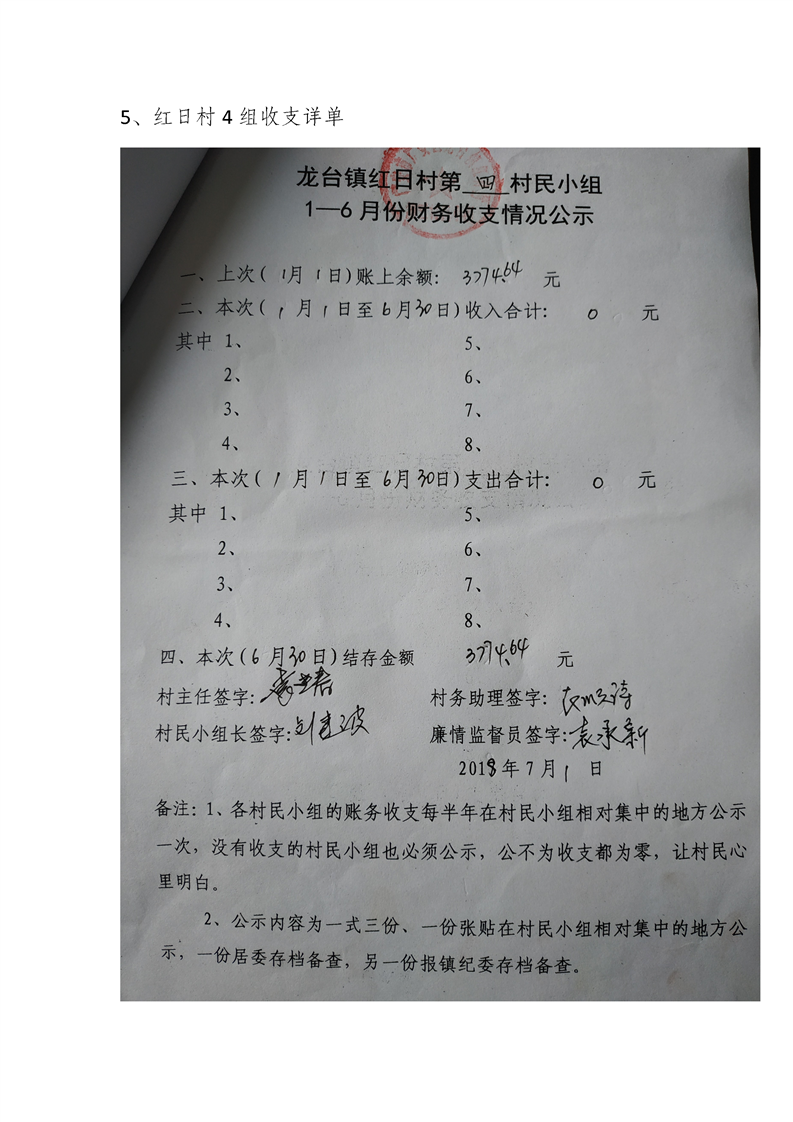 5、红日村 4 组收支详单
龙台镇红日村第 四 村民小组
1—6 月份财务收支情况公示
一、上次( 1月 1日)账上余额: 3774.64 元
二、本次( 1 月 1 日至 6月30日)收入合计: 0 元
其中 1、 5、
2、 6、
3、 7、
4、 8、
三、本次( 1 月 1 日至 6月30日)支出合计: 0 元
其中 1、 5、
2、 6、
3、 7、
4、 8、
四、本次(6 月30日)结存金额 3774.64 元
村主任签字: 村务助理签字:
村民小组长签字: 廉情监督员签字:袁承新
2019 年 7 月 1 日
备注:1、各村民小组的账务收支每半年在村民小组相对集中的地方公示
一次，没有收支的村民小组也必须公示，公不为收支都为零，让村民心
里明白。
2、公示内容为一式三份、一份张贴在村民小组相对集中的地方公
示，一份居委存档备查，另一份报镇纪委存档备查。